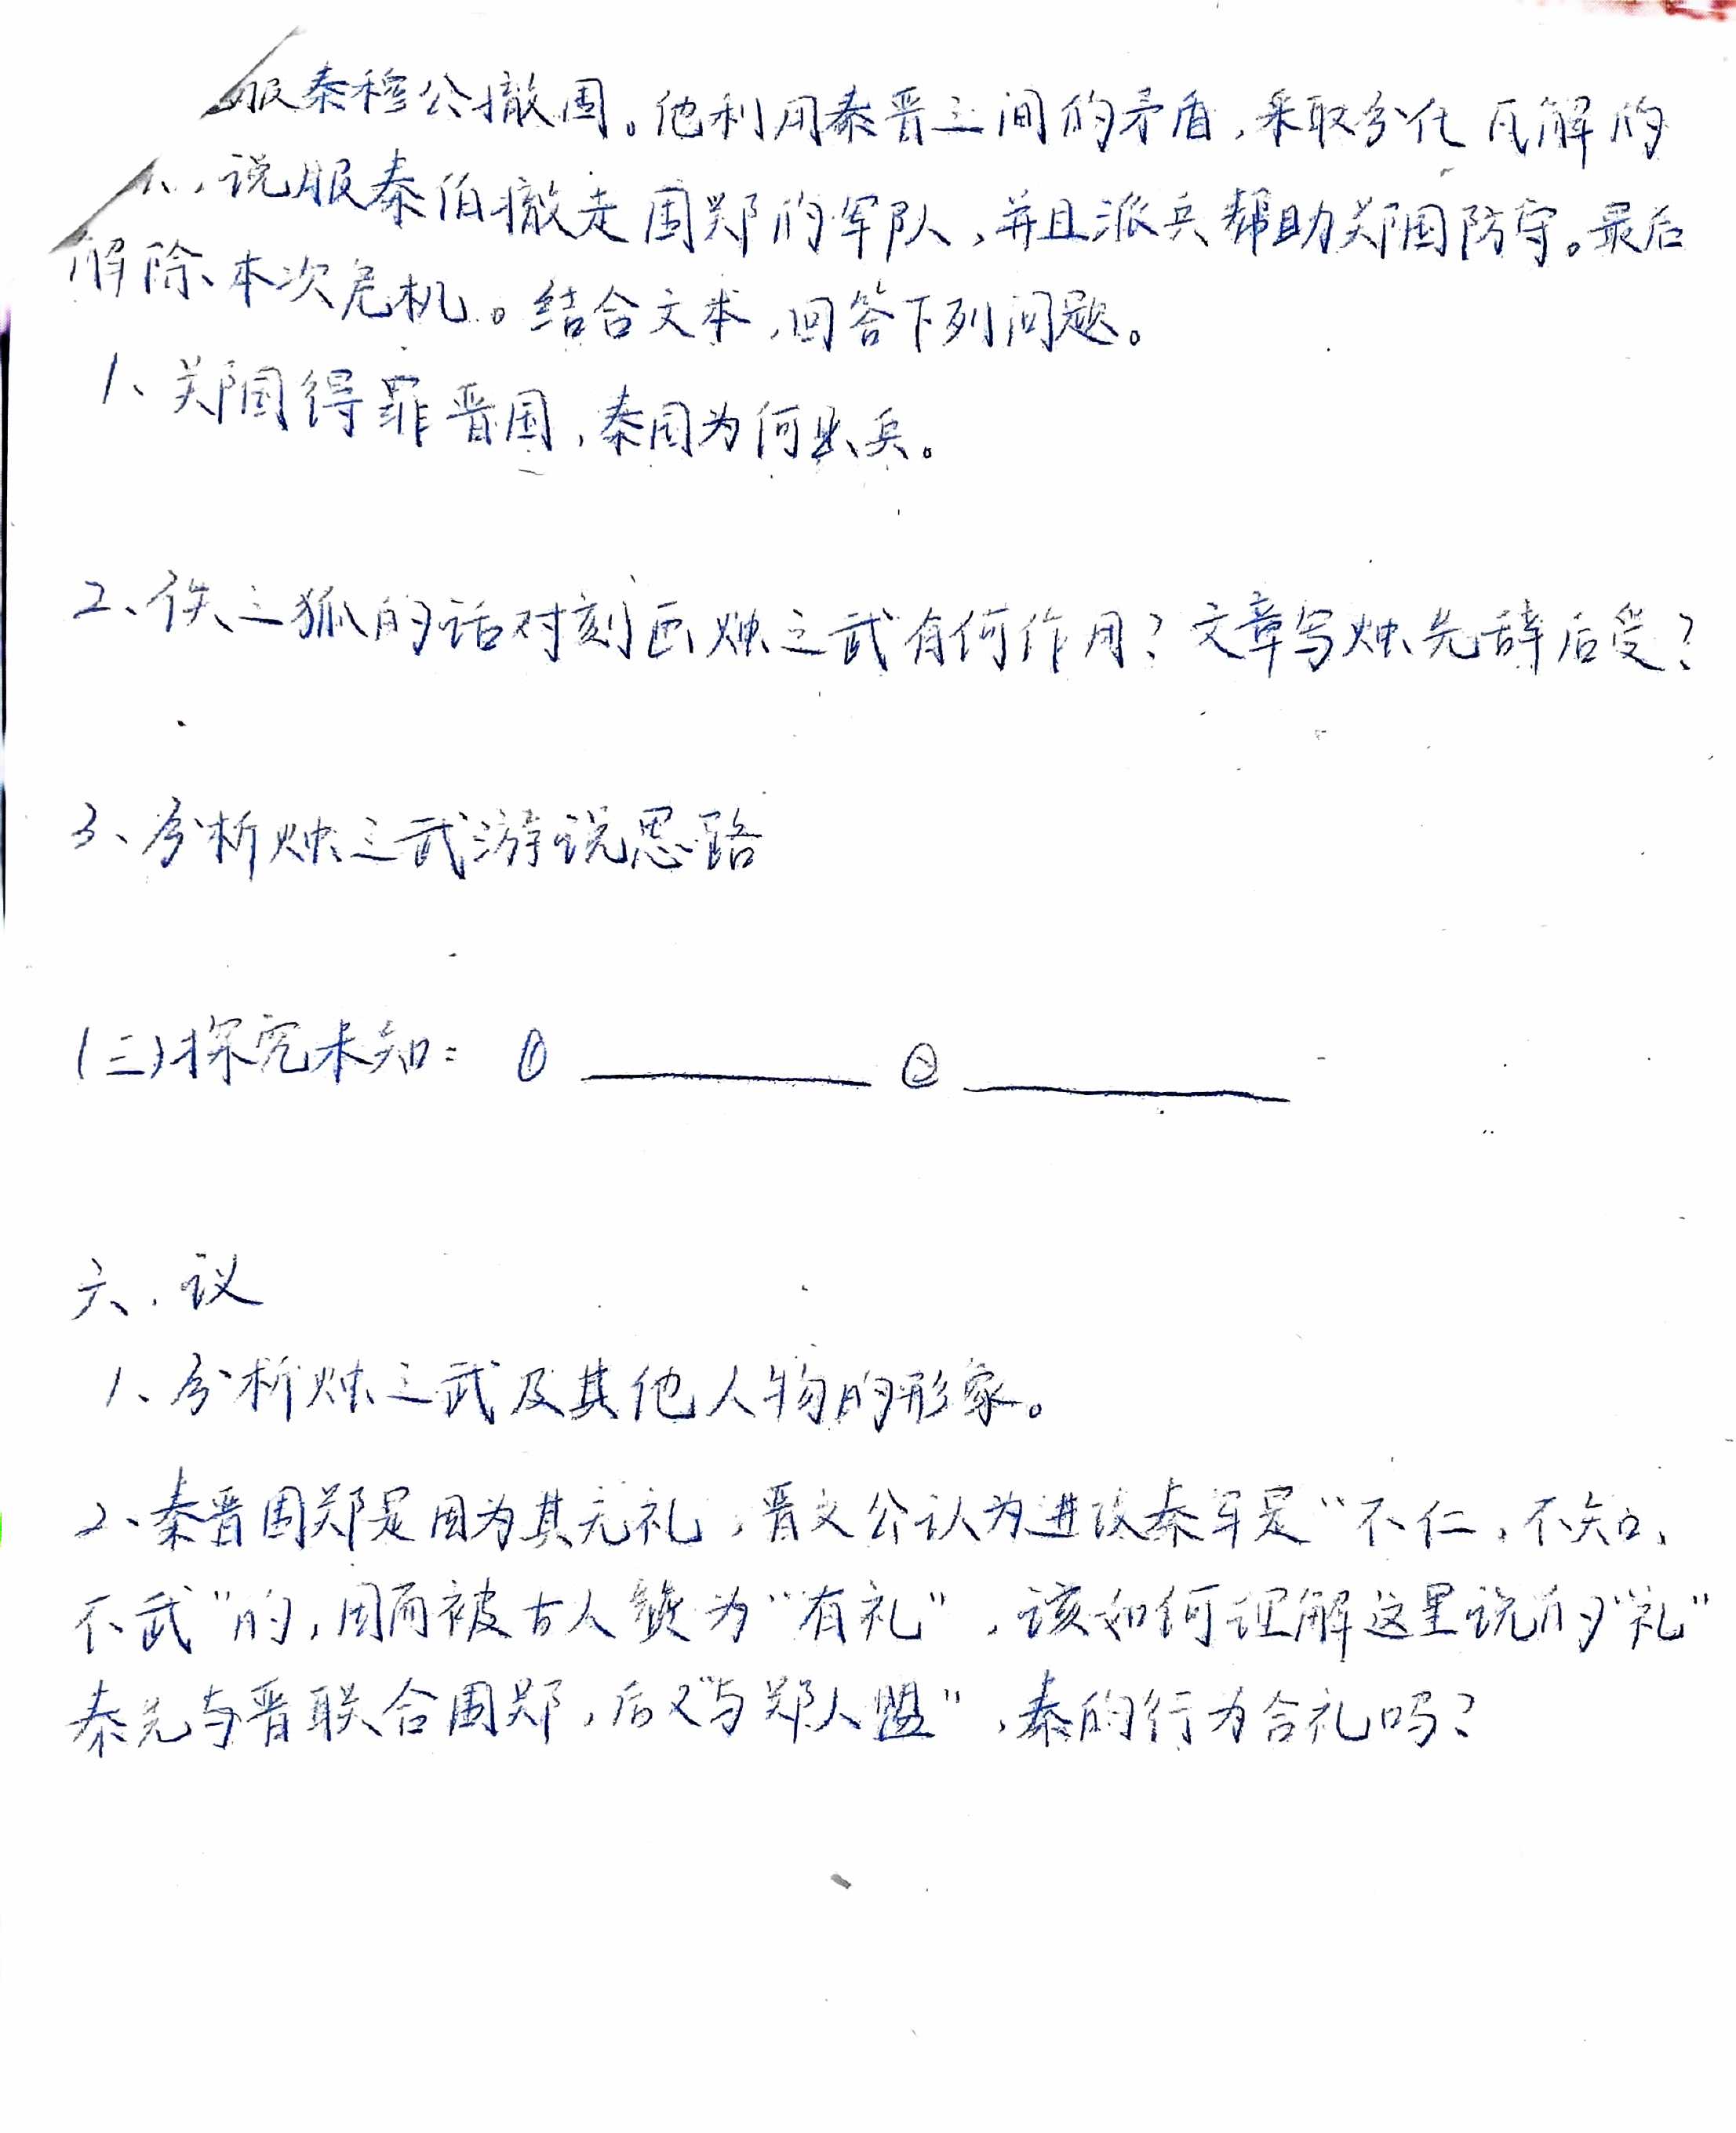 服秦穆公撤围。他利用秦晋之间的矛盾,采取分化瓦解的
,说服秦伯撤走围郑的军队,并且派兵帮助郑国防守。最后
解除本次危机。结合文本,回答下列问题。
1、郑国得罪晋国,秦国为何出兵。
2、佚之狐的话对刻画烛之武有何作用?文章写烛先辞后受?
3、分析烛之武游说思路
(三)探究未知: ① ②
六、议
1、分析烛之武及其他人物的形象。
2、秦晋围郑是因为其无礼,晋文公认为进攻秦军是“不仁,不知、
不武”的,因而被古人赞为“有礼”,该如何理解这里说的“礼”
秦先与晋联合围郑,后又“与郑人盟”,秦的行为合礼吗?